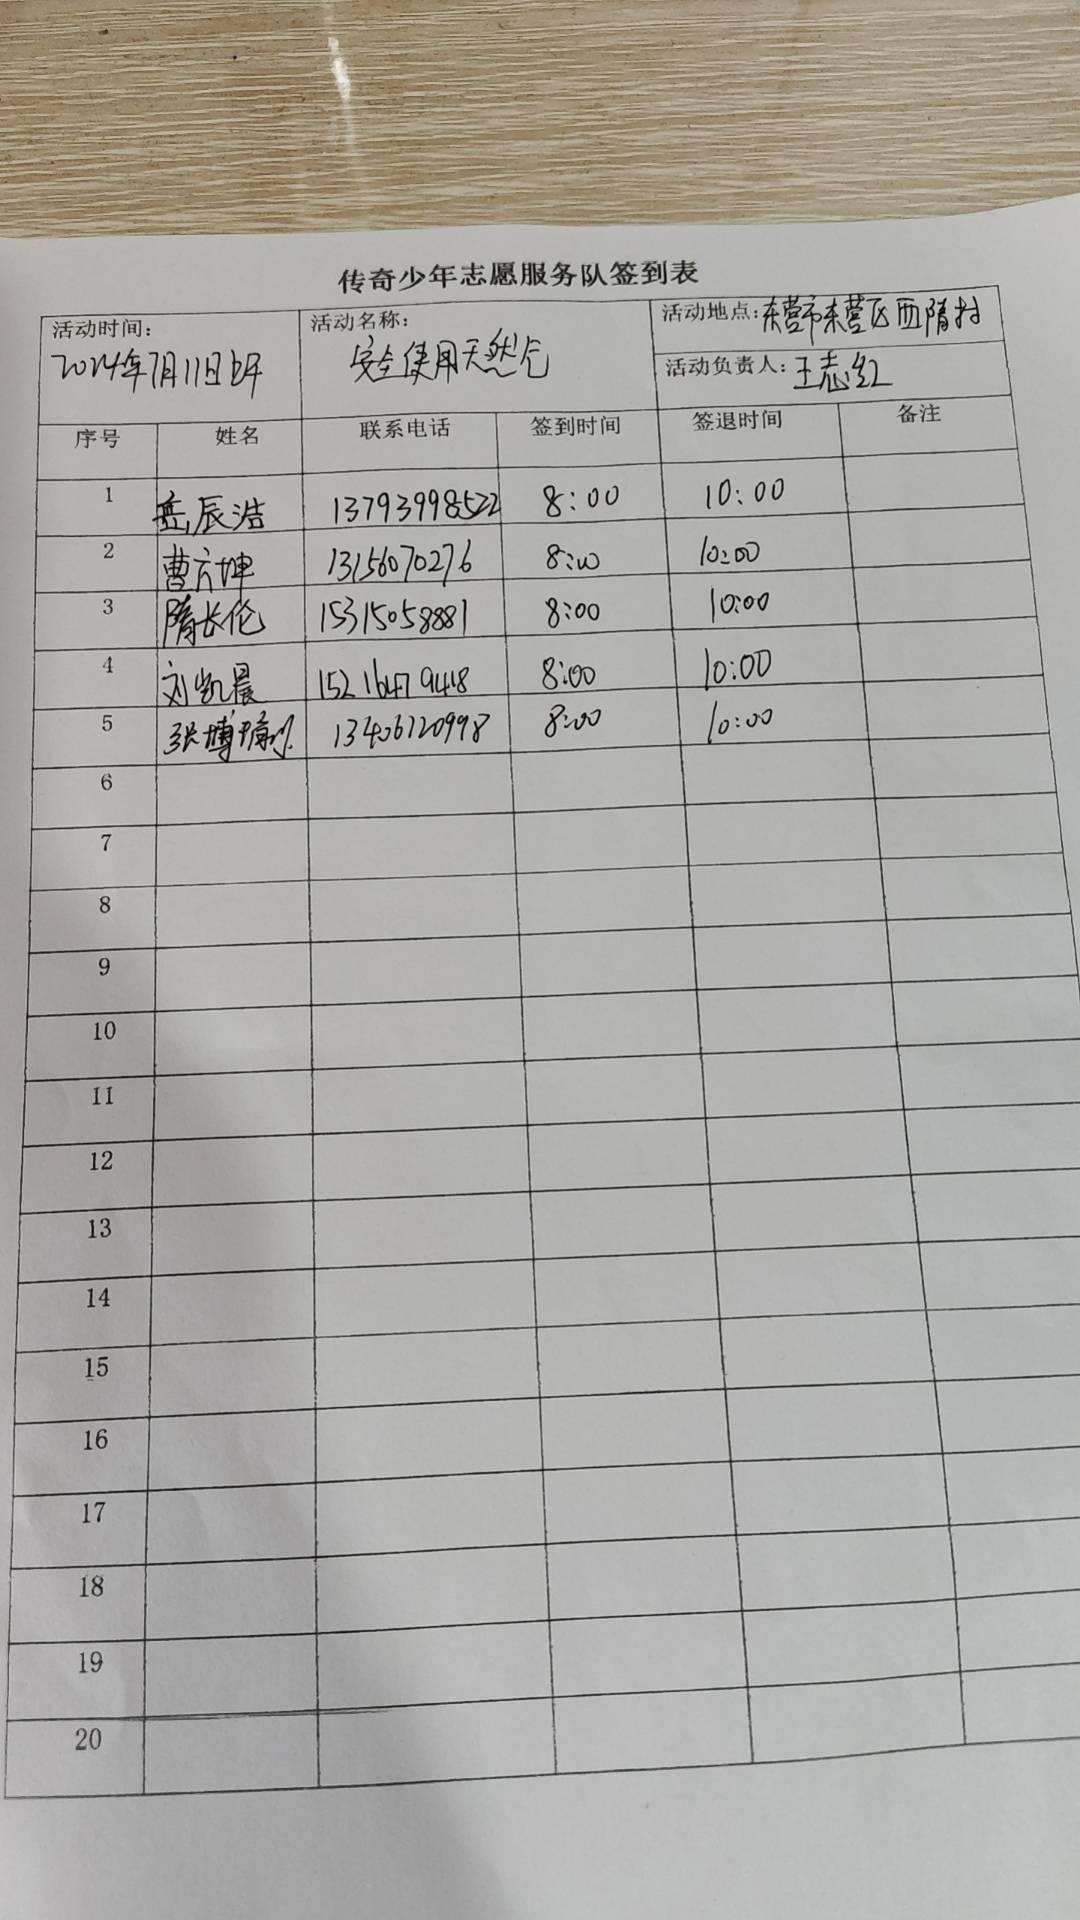 传奇少年志愿服务队签到表
活动时间： 活动名称： 活动地点：东营市东营区西隋村
2024年7月11日上午 安全使用天然气 活动负责人：王志红
序号 姓名 联系电话 签到时间 签退时间 备注
1 岳辰浩 13793998522 8:00 10:00
2 曹方坤 13156070276 8:00 10:00
3 隋长伦 15315058881 8:00 10:00
4 刘凯晨 15216479448 8:00 10:00
5 张博 13406120998 8:00 10:00
6
7
8
9
10
11
12
13
14
15
16
17
18
19
20